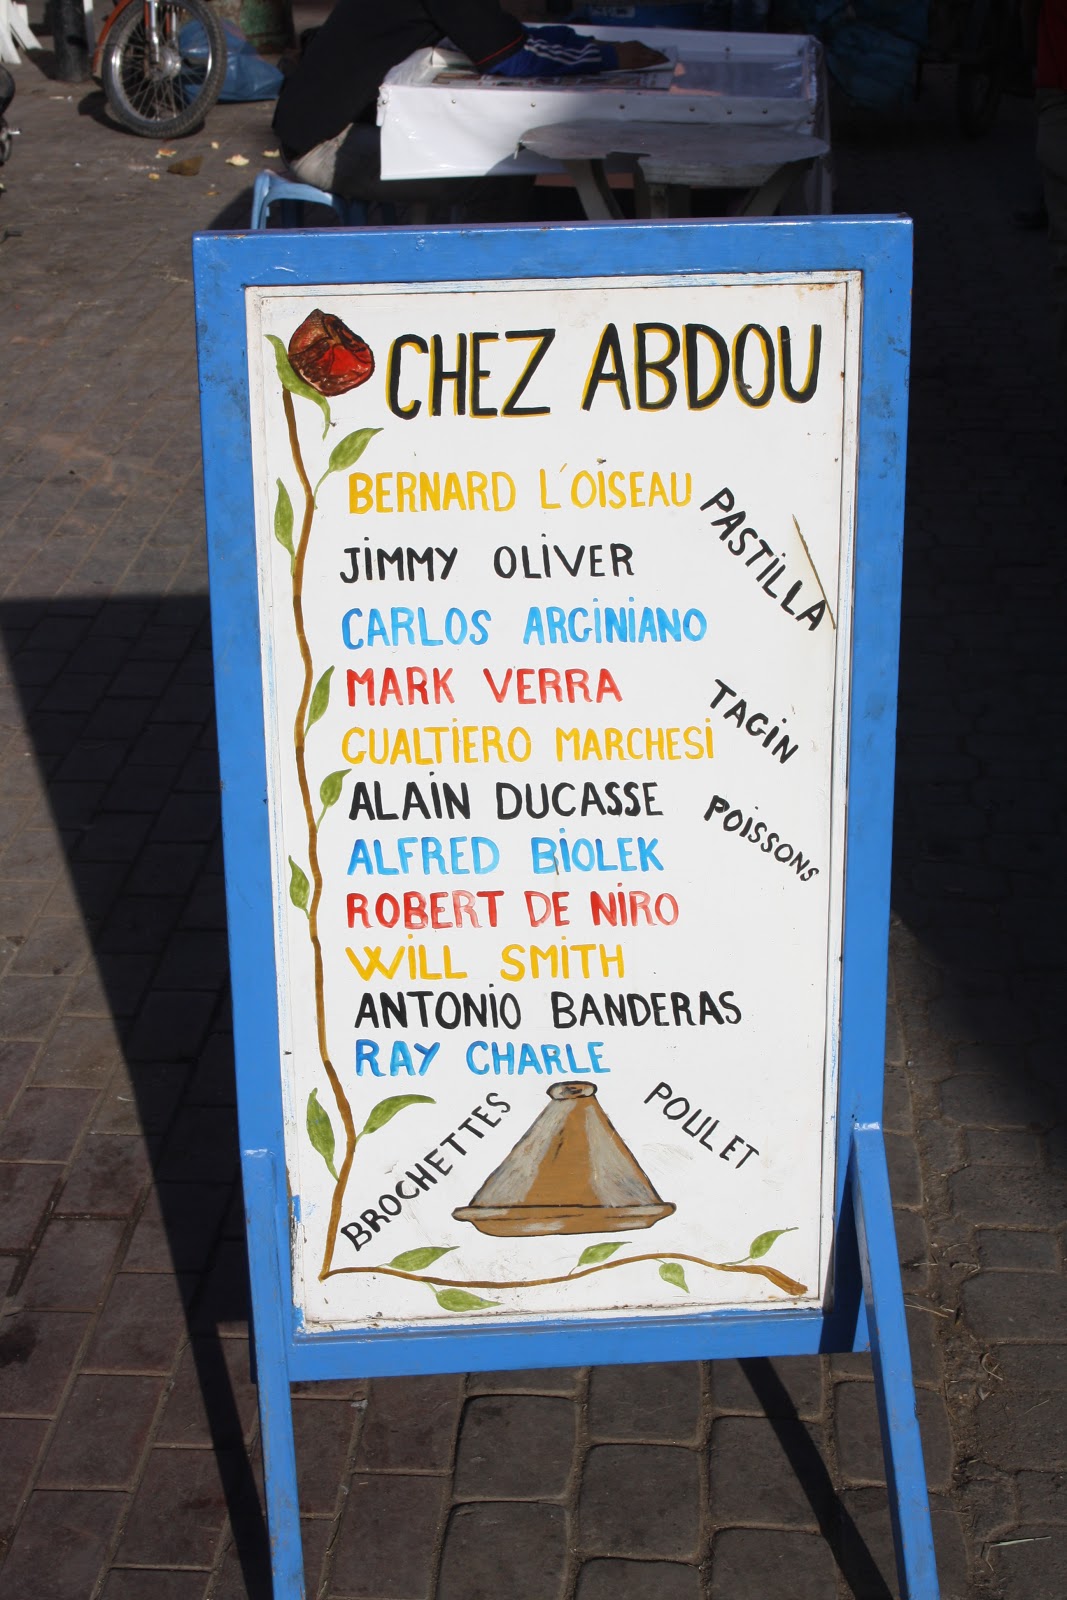 CHEZ ABDOU
BERNARD L'OISEAU
JIMMY OLIVER
CARLOS ARGINIANO
MARK VERRA
GUALTIERO MARCHESI
ALAIN DUCASSE
ALFRED BIOLEK
ROBERT DE NIRO
WILL SMITH
ANTONIO BANDERAS
RAY CHARLE
PASTILLA
TAGIN
POISSONS
BROCHETTES
POULET